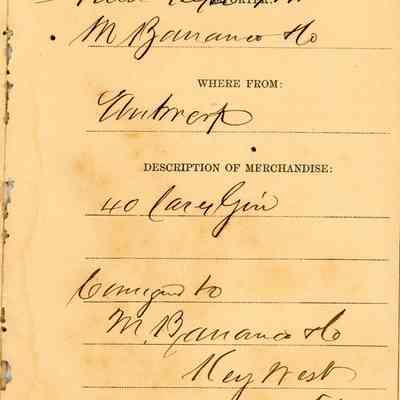 PORTER:
M Barranco & Co
WHERE FROM:
Antwerp
DESCRIPTION OF MERCHANDISE:
40 Cases Gin
Consigned to
M. Barranco & Co
Key West